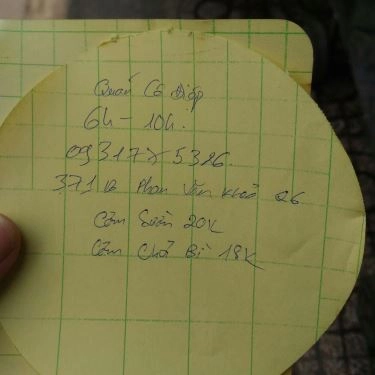 Quán Cô Điệp
6h - 10h.
5326.
371 Phan Văn Khoẻ Q6
Cơm Sườn 20K
Cơm Chả Bì 18K